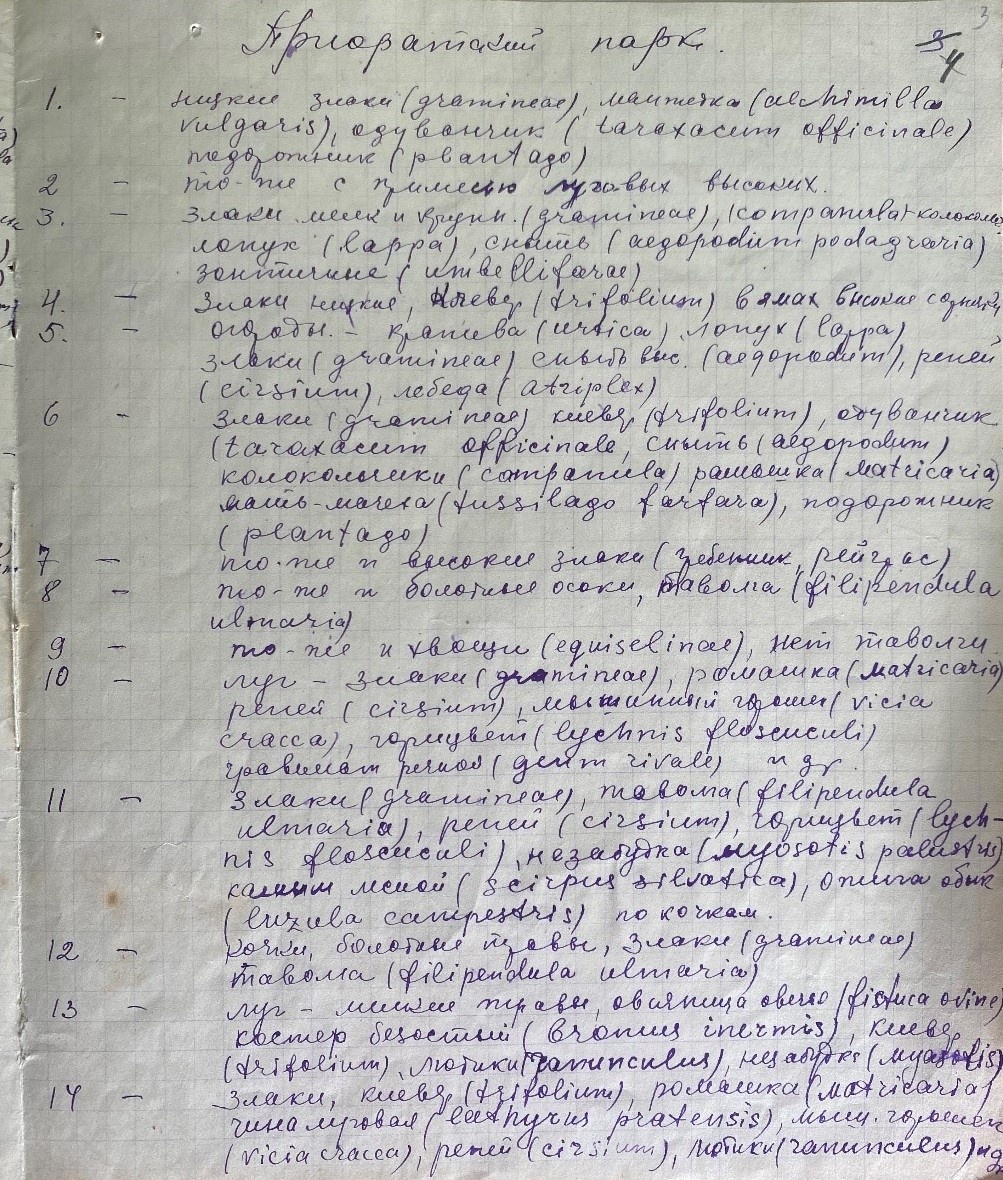 3
Приоратский парк.
4
1. – низкие злаки (gramineae), манжетка (alchimilla
vulgaris), одуванчик (taraxacum officinale)
подорожник (plantago)
2 – то-же с примесью луговых высоких.
3. – Злаки мелк и крупн. (gramineae), (companula) колоколь
лопух (lappa), сныть (aegopodium podagraria)
зонтичные (umbelliferae)
4. – Злаки низкие, клевер (trifolium) в ямах высокие сорняки
5. – огороды. – крапива (urtica), лопух (lappa)
злаки (gramineae) сныть выс. (aegopodum), репей
(cirsium), лебеда (atriplex)
6 – Злаки (gramineae) клевер (trifolium), одуванчик
(taraxacum officinale, сныть (aegopodum)
колокольчики (companula) ромашка (matricaria)
мать-мачеха (tussilago farfara), подорожник
(plantago)
7 – то-же и высокие злаки (гребенник, рейграс)
8 – то-же и болотные осоки, таволга (filipendula
ulmaria)
9 – то-же и хвощи (equiselinae), нет таволги.
10 – луг – злаки (gramineae), ромашка (matricaria)
репей (cirsium), мышинный горошек (vicia
cracca), горицвет (lychnis floscuculi)
гравилат речной (geum rivale) и др.
11 – Злаки (gramineae), таволга (filipendula
ulmaria), репей (cirsium), горицвет (lych-
nis floscuculi), незабудка (myosotis palustris)
камыш лесной (scirpus silvatica), ожига обык
(luzula campestris) по кочкам.
12 – кочки, болотные травы, злаки (gramineae)
таволга (filipendula ulmaria)
13 – луг – мелкие травы, овсяница овечья (fistuca ovine)
костер безостый (bromus inermis), клевер
(trifolium), лютики (ranunculus), незабудка (myosotis)
14 – Злаки, клевер (trifolium), ромашка (matricaria)
чина луговая (lathyrus pratensis), мыш. горошек
(vicia cracca), репей (cirsium), лютики (ranunculus) и др